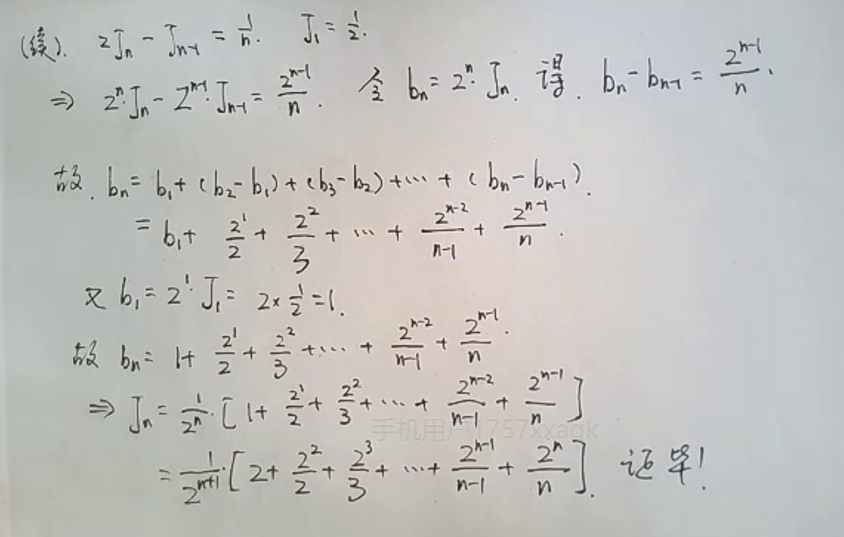 (续). 2Jₙ − Jₙ₋₁ = 1/n. J₁ = 1/2.
⇒ 2ⁿ·Jₙ − 2ⁿ⁻¹·Jₙ₋₁ = 2ⁿ⁻¹/n. 令 bₙ = 2ⁿ·Jₙ. 得. bₙ − bₙ₋₁ = 2ⁿ⁻¹/n.
故. bₙ = b₁ + (b₂ − b₁) + (b₃ − b₂) + ··· + (bₙ − bₙ₋₁).
= b₁ + 2¹/2 + 2²/3 + ··· + 2ⁿ⁻²/(n−1) + 2ⁿ⁻¹/n.
又 b₁ = 2¹·J₁ = 2 × 1/2 = 1.
故 bₙ = 1 + 2¹/2 + 2²/3 + ··· + 2ⁿ⁻²/(n−1) + 2ⁿ⁻¹/n.
⇒ Jₙ = 1/2ⁿ·[1 + 2¹/2 + 2²/3 + ··· + 2ⁿ⁻²/(n−1) + 2ⁿ⁻¹/n]
= 1/2ⁿ⁺¹·[2 + 2²/2 + 2³/3 + ··· + 2ⁿ⁻¹/(n−1) + 2ⁿ/n]. 证毕!